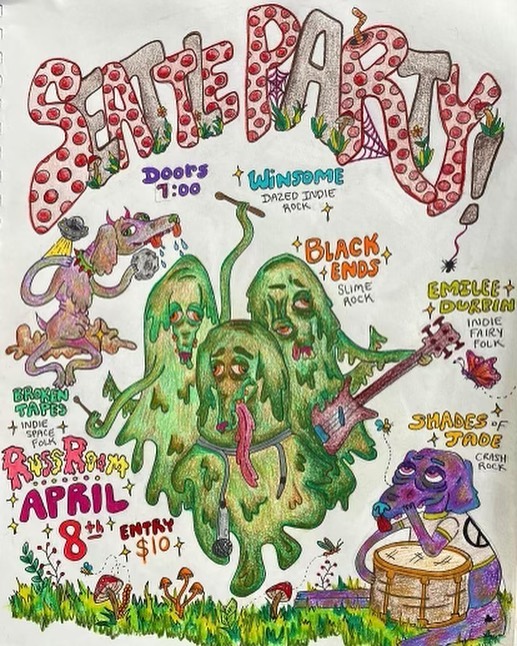 SEATTLE PARTY!
DOORS
7:00
WINSOME
DAZED INDIE
ROCK
BLACK
ENDS
SLIME
ROCK
EMILEE
DURBIN
INDIE
FAIRY
FOLK
BROKEN
TAPES
INDIE
SPACE
FOLK
SHADES OF
JADE
CRASH
ROCK
RUSS ROOM
APRIL
8th
ENTRY
$10